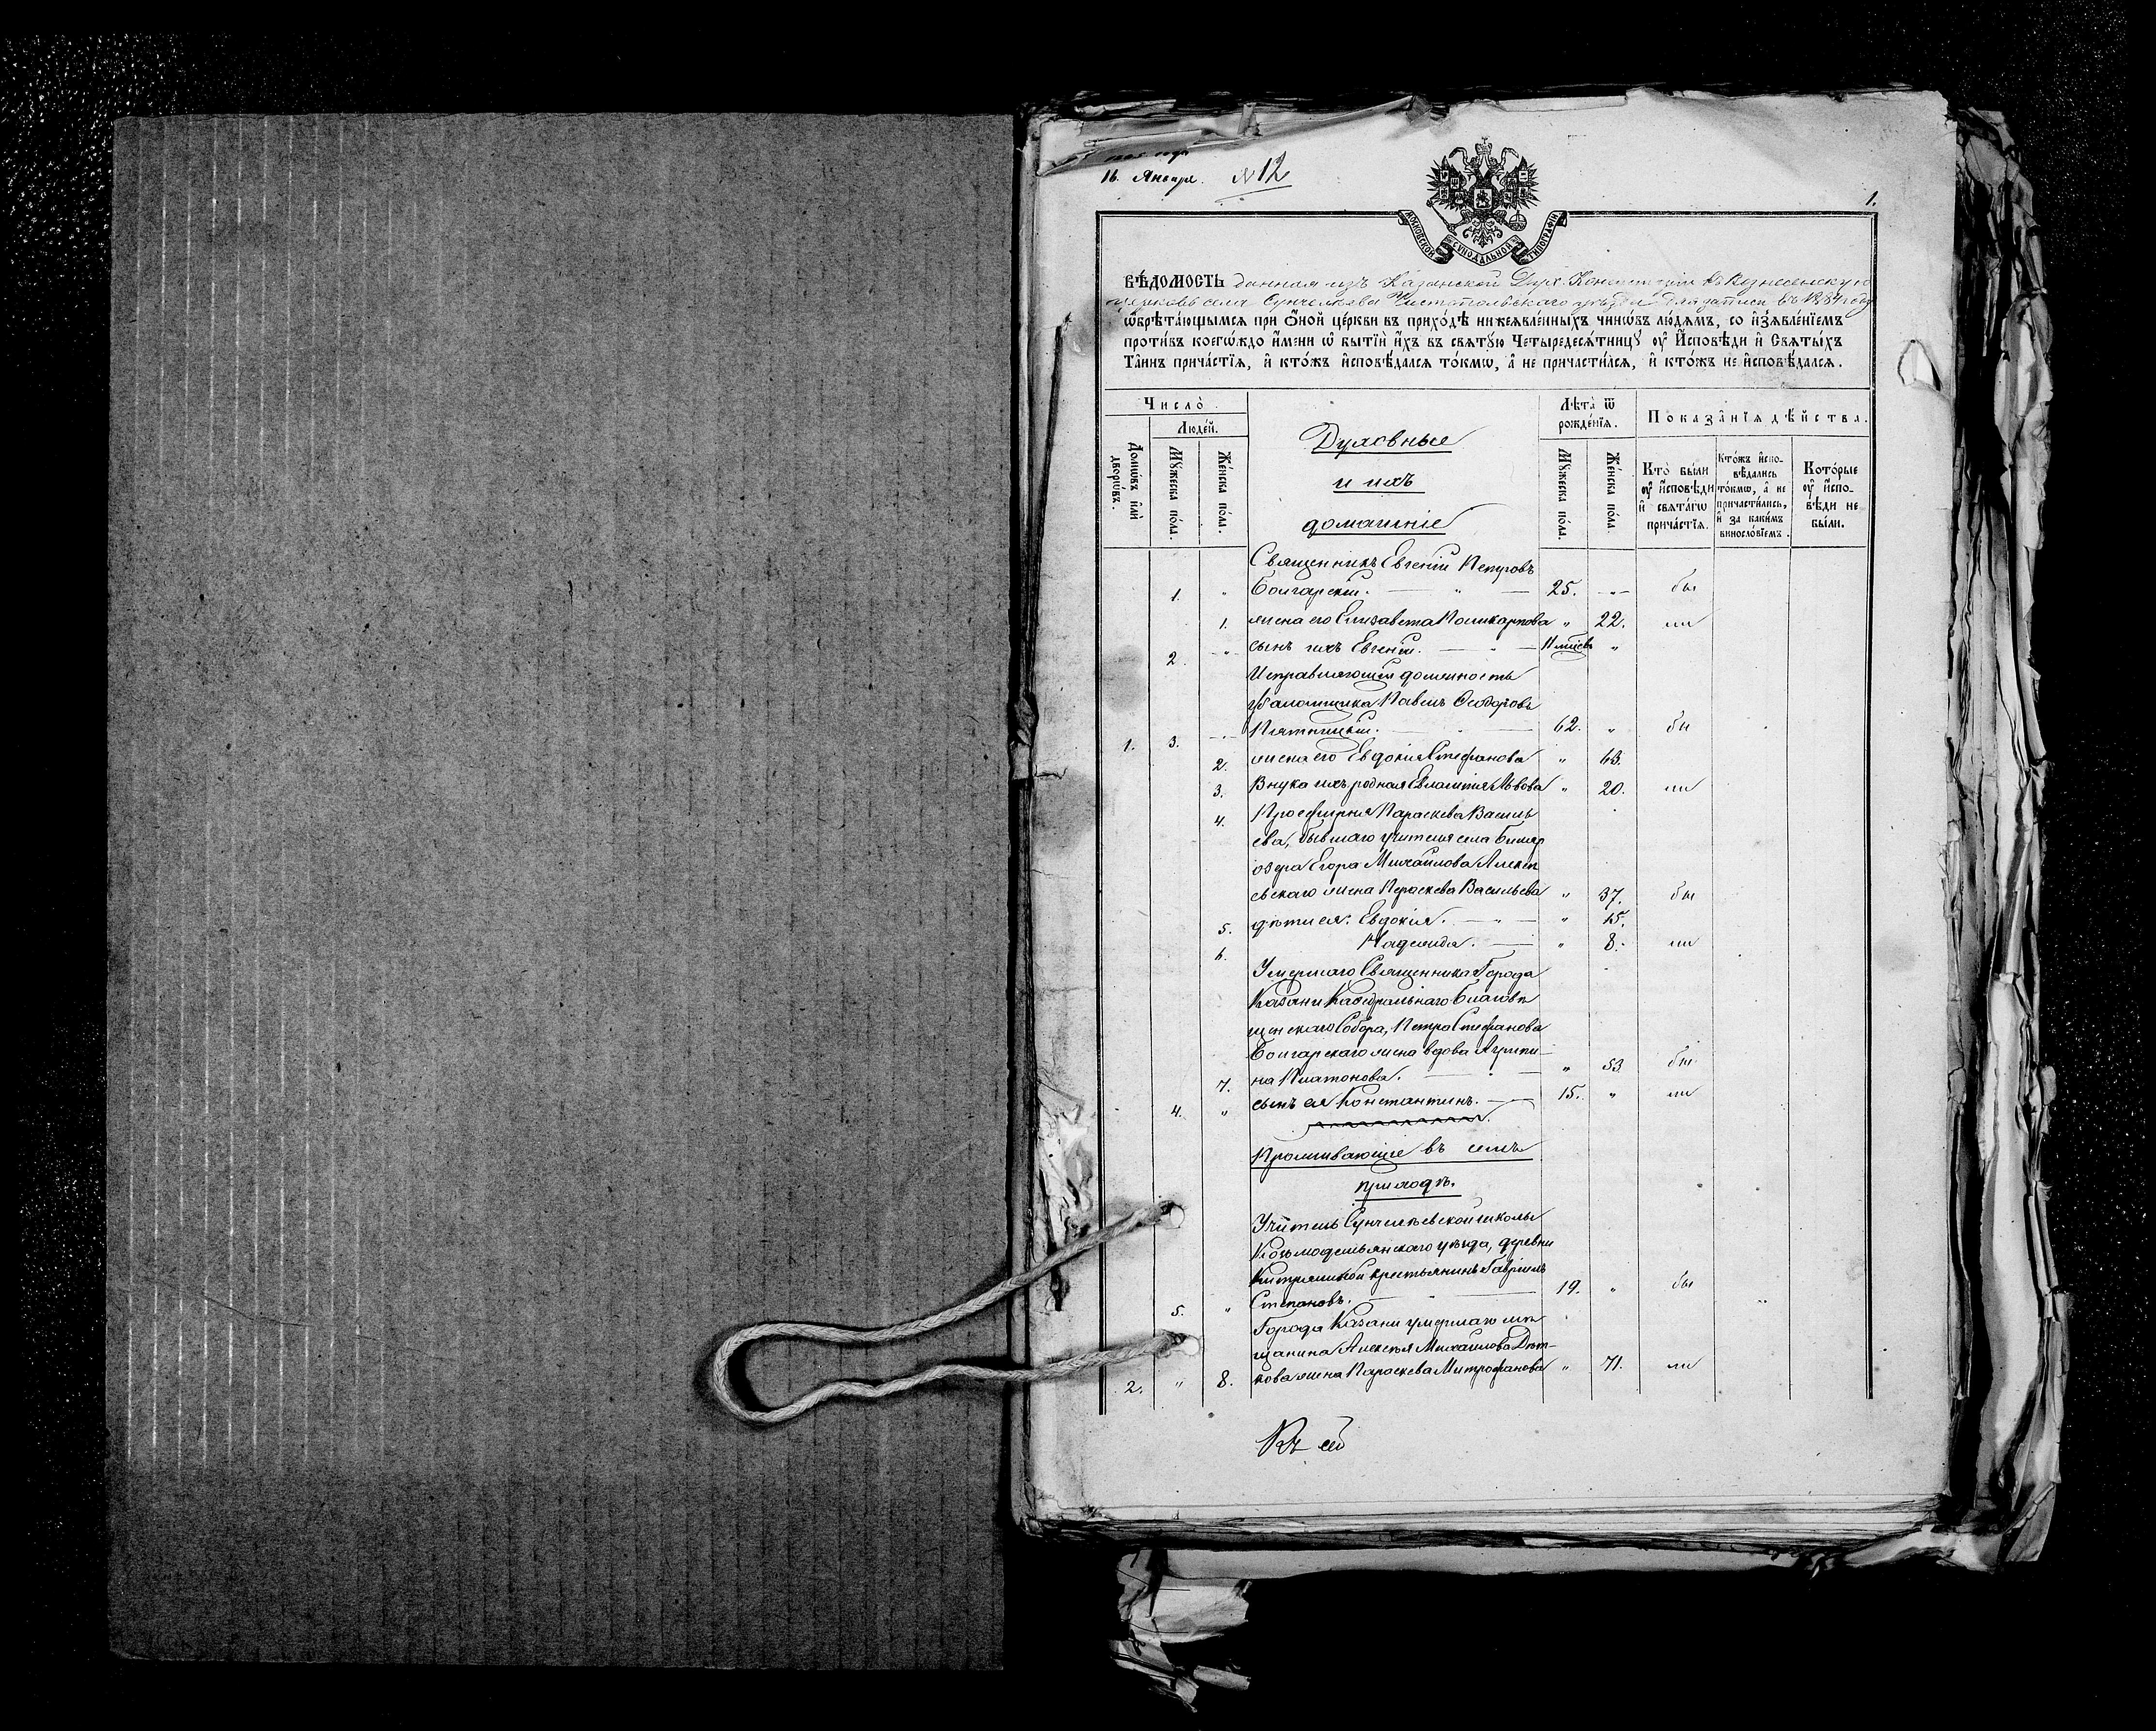 16. Января. №12
1.
МОСКОВСКОЙ СѴНОДАЛЬНОЙ ТИПОГРАФІИ
ВѢ́ДОМОСТЬ данная изъ Казанской Дух. Консисторіи въ Вознесенскую
церковь села Сунчелѣева Чистопольскаго уѣзда для записи въ 1884 году
ѡ҆брѣта́ющымсѧ при ѻ҆́ной це́ркви въ прихо́дѣ нижеѧвле́нныхъ чинѡ́въ лю́дѧмъ, со и҆з̾ѧвле́нїемъ
про́тивъ коегѡ́ждо и҆́мени ѡ҆ бытїѝ и҆́хъ въ свѧту́ю Четыредесѧ́тницꙋ ᲂу҆ И҆́сповѣди и҆ Свѧты́хъ
Та̑инъ прича́стїѧ, и҆ кто́жъ и҆сповѣ́далсѧ то́кмѡ, а҆ не причасти́лсѧ, и҆ кто́жъ не и҆сповѣ́далсѧ.
Число̀
Люде́й.
Домѡ́въ и҆лѝ дворѡ́въ.
Мꙋ́жеска по́ла.
Же́нска по́ла.
Духовные
и ихъ
домашніе
Лѣ́та ѿ рожде́нїѧ.
Мꙋ́жеска по́ла.
Же́нска по́ла.
Показа̑нїѧ дѣ́йства.
Кто̀ были ᲂу҆ и҆́сповѣди и҆ свѧта́гѡ прича́стїѧ.
Кто́жъ и҆спо-вѣдались то́кмѡ, а҆ не причасти́лись, и҆ за каки́мъ виносло́вїемъ.
Кото́рые ᲂу҆ и҆́спо-вѣди не бы́ли.
Священникъ Евгеній Петровъ
1. " Болгарскій. — " — 25. " бы
1. жена его Елизавета Поликарпова " 22. ли
2. " сынъ ихъ Евгеній. — " —
Исправляющій должность
псаломщика Павелъ Ѳеодоровъ
1. 3. Пятницкій. 62. " бы
2. жена его Евдокія Стефанова " 63.
3. Внука ихъ родная Львова " 20. ли
4. Просфирня Параскева Василь
ева, бывшаго учителя села
озера Егора Михайлова Алекѣ
евскаго жена Параскева Васильева " 37. бы
5. дѣти ея: Евдокія. — " — " 15.
6. Надежда. — " 8. ли
Умершаго Священника Города
Казани Каѳедральнаго Благовѣ
щенскаго Собора, Петра Стефанова
Болгарскаго жена вдова Агрипи-
7. на Платонова. " 53. бы
4. " сынъ ея Константинъ. — 15. " ли
Проживающіе въ семъ
приходѣ.
Учитель Сунчелѣевской школы
Козьмодемьянскаго уѣзда, деревни
крестьянинъ Гавріилъ
5. " Степановъ. 19. " бы
Города Казани умершаго мѣ
щанина Алексѣя Михайлова Дѣт-
2. " 8. кова жена Параскева Митрофанова " 71. ли